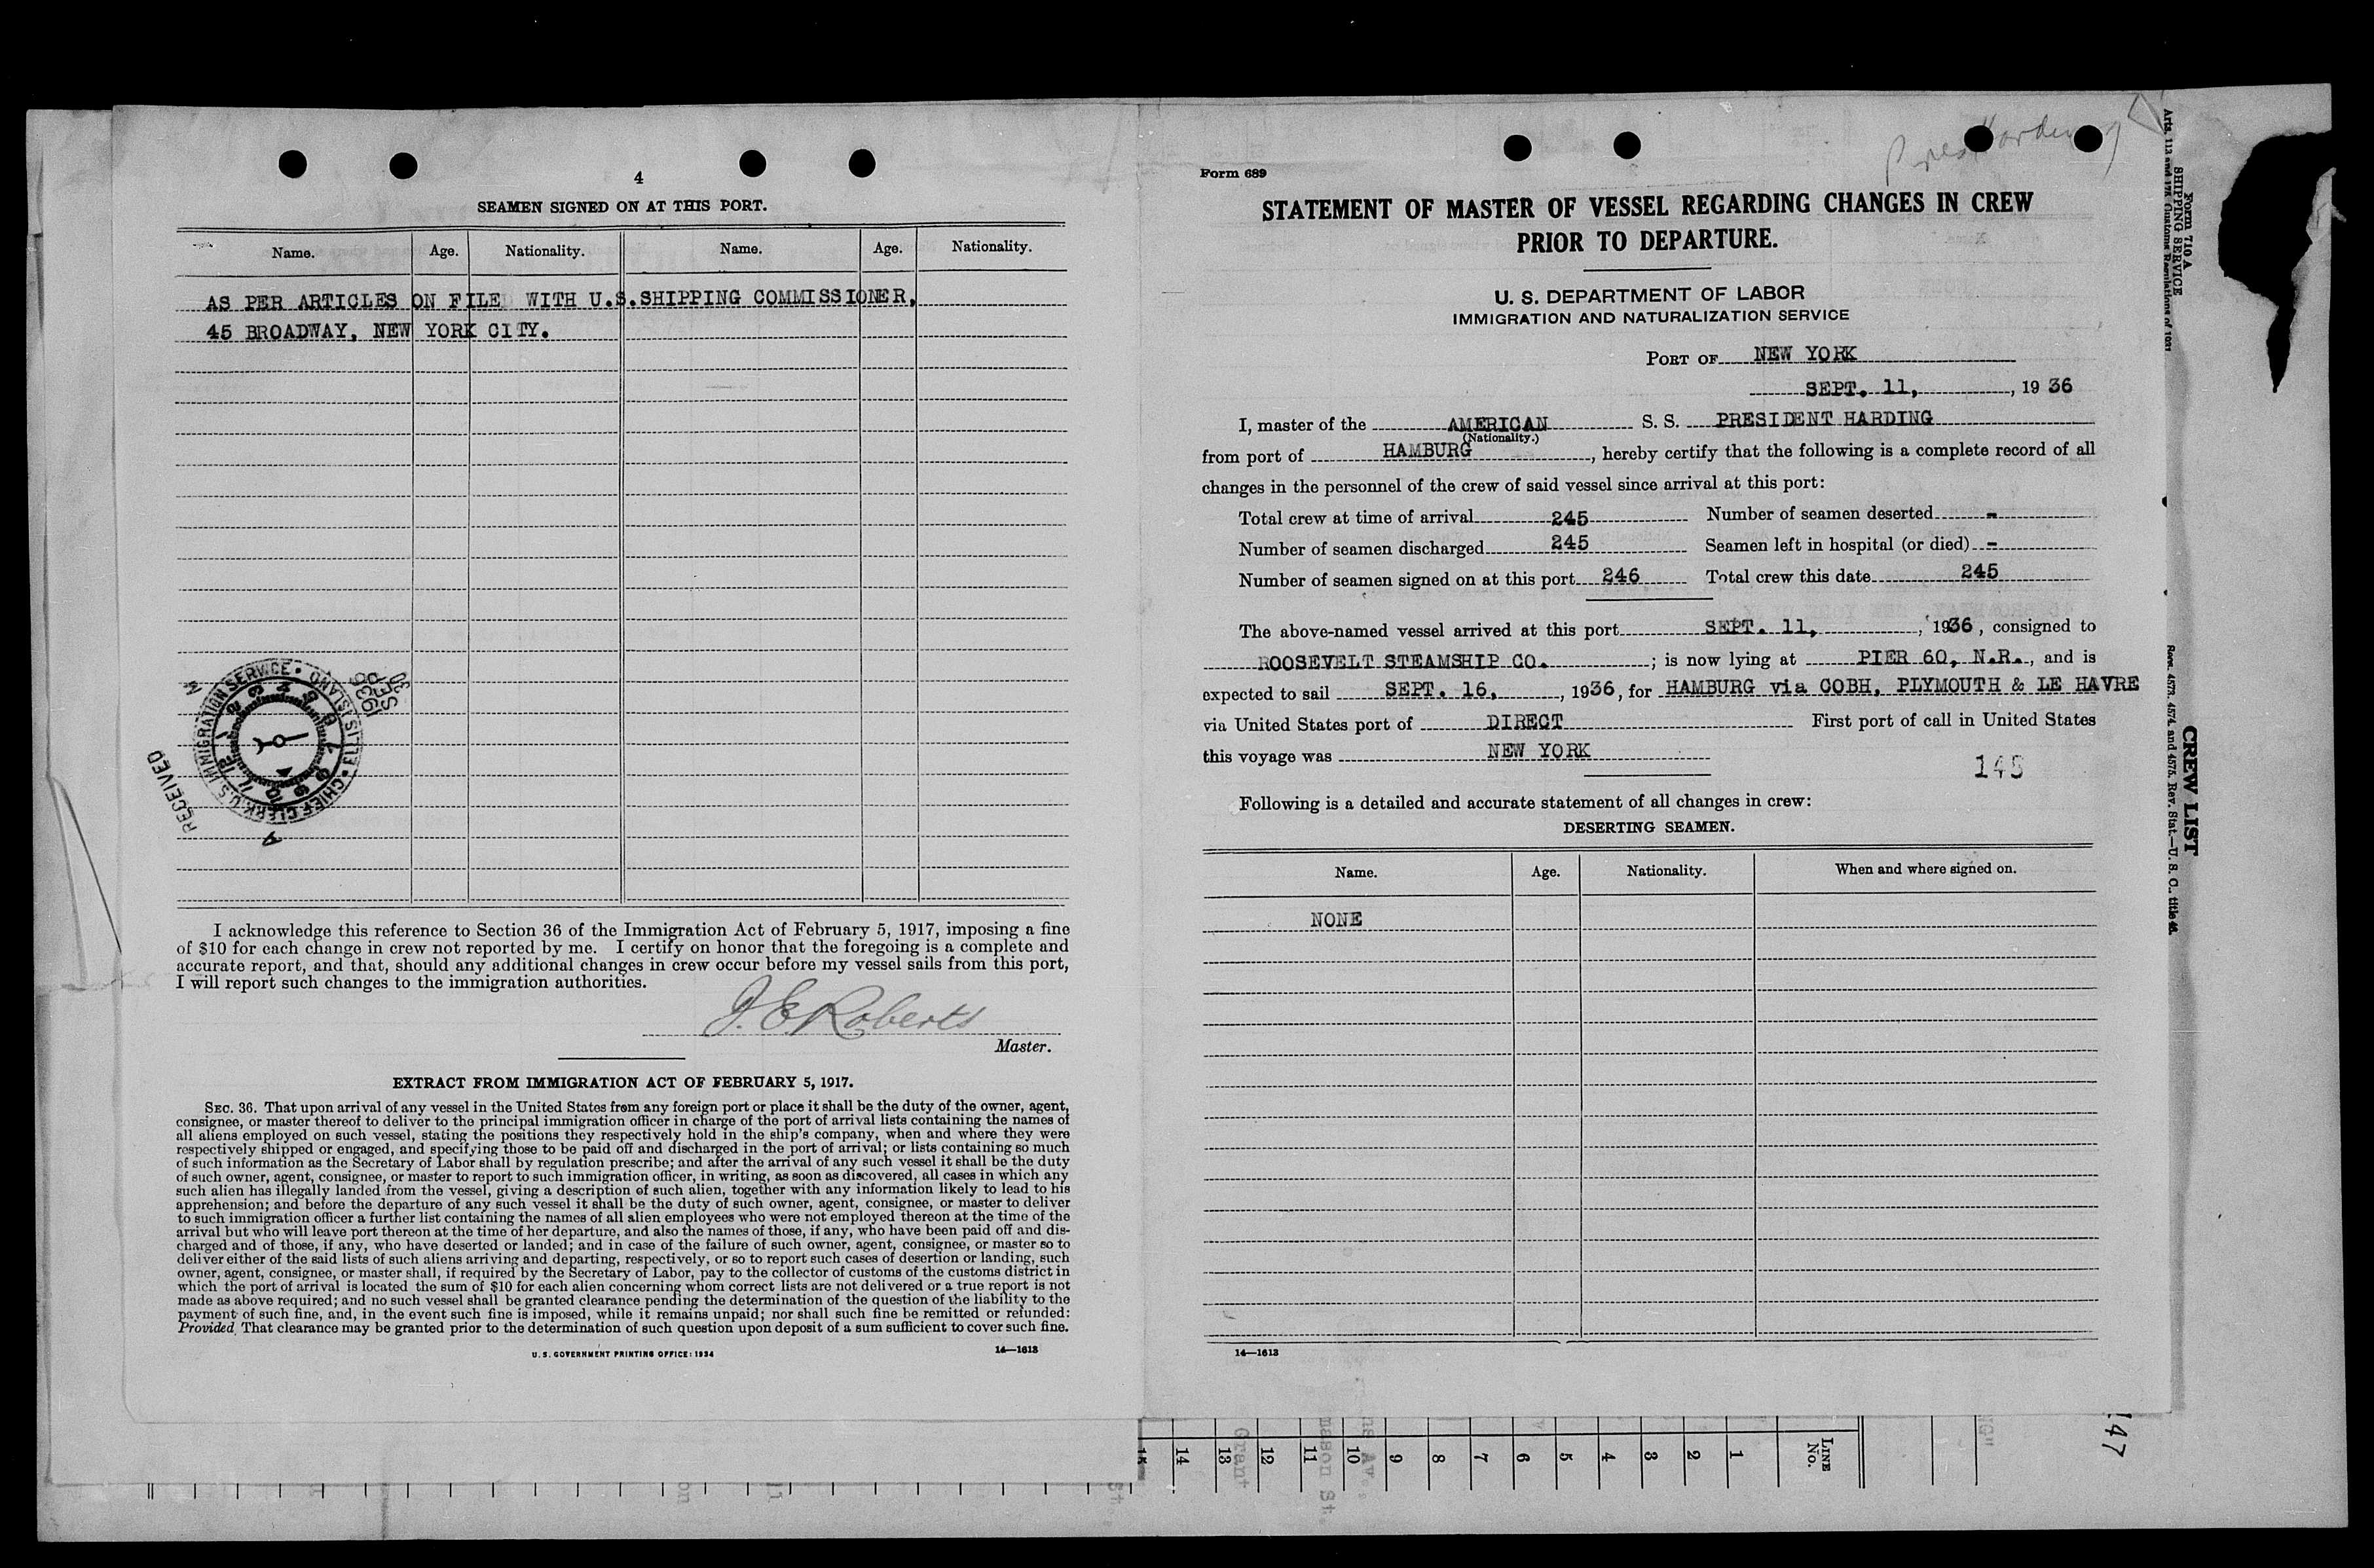 4
SEAMEN SIGNED ON AT THIS PORT.
Name. Age. Nationality. Name. Age. Nationality.
AS PER ARTICLES ON FILE WITH U.S.SHIPPING COMMISSIONER,
45 BROADWAY, NEW YORK CITY.
RECEIVED
1936 SEP 30
U.S. IMMIGRATION SERVICE • ELLIS ISLAND • CHIEF CLERK
M
A
I acknowledge this reference to Section 36 of the Immigration Act of February 5, 1917, imposing a fine
of $10 for each change in crew not reported by me. I certify on honor that the foregoing is a complete and
accurate report, and that, should any additional changes in crew occur before my vessel sails from this port,
I will report such changes to the immigration authorities.
J. E. Roberts
Master.
EXTRACT FROM IMMIGRATION ACT OF FEBRUARY 5, 1917.
SEC. 36. That upon arrival of any vessel in the United States from any foreign port or place it shall be the duty of the owner, agent,
consignee, or master thereof to deliver to the principal immigration officer in charge of the port of arrival lists containing the names of
all aliens employed on such vessel, stating the positions they respectively hold in the ship's company, when and where they were
respectively shipped or engaged, and specifying those to be paid off and discharged in the port of arrival; or lists containing so much
of such information as the Secretary of Labor shall by regulation prescribe; and after the arrival of any such vessel it shall be the duty
of such owner, agent, consignee, or master to report to such immigration officer, in writing, as soon as discovered, all cases in which any
such alien has illegally landed from the vessel, giving a description of such alien, together with any information likely to lead to his
apprehension; and before the departure of any such vessel it shall be the duty of such owner, agent, consignee, or master to deliver
to such immigration officer a further list containing the names of all alien employees who were not employed thereon at the time of the
arrival but who will leave port thereon at the time of her departure, and also the names of those, if any, who have been paid off and dis-
charged and of those, if any, who have deserted or landed; and in case of the failure of such owner, agent, consignee, or master so to
deliver either of the said lists of such aliens arriving and departing, respectively, or so to report such cases of desertion or landing, such
owner, agent, consignee, or master shall, if required by the Secretary of Labor, pay to the collector of customs of the customs district in
which the port of arrival is located the sum of $10 for each alien concerning whom correct lists are not delivered or a true report is not
made as above required; and no such vessel shall be granted clearance pending the determination of the question of the liability to the
payment of such fine, and, in the event such fine is imposed, while it remains unpaid; nor shall such fine be remitted or refunded:
Provided, That clearance may be granted prior to the determination of such question upon deposit of a sum sufficient to cover such fine.
U. S. GOVERNMENT PRINTING OFFICE: 1934 14—1613
Pres Harding
Form 689
STATEMENT OF MASTER OF VESSEL REGARDING CHANGES IN CREW
PRIOR TO DEPARTURE.
U. S. DEPARTMENT OF LABOR
IMMIGRATION AND NATURALIZATION SERVICE
PORT OF NEW YORK
SEPT. 11, , 19 36
I, master of the AMERICAN S. S. PRESIDENT HARDING
(Nationality.)
from port of HAMBURG , hereby certify that the following is a complete record of all
changes in the personnel of the crew of said vessel since arrival at this port:
Total crew at time of arrival 245 Number of seamen deserted -
Number of seamen discharged 245 Seamen left in hospital (or died) -
Number of seamen signed on at this port 246 Total crew this date 245
The above-named vessel arrived at this port SEPT. 11, , 1936, consigned to
ROOSEVELT STEAMSHIP CO. ; is now lying at PIER 60, N.R., and is
expected to sail SEPT. 16, , 1936, for HAMBURG via COBH, PLYMOUTH & LE HAVRE
via United States port of DIRECT First port of call in United States
this voyage was NEW YORK
145
Following is a detailed and accurate statement of all changes in crew:
DESERTING SEAMEN.
Name. Age. Nationality. When and where signed on.
NONE
14—1613
Form 710 A
SHIPPING SERVICE
Arts. 113 and 175 Customs Regulations of 1931
CREW LIST
Secs. 4573, 4574, and 4575, Rev. Stat.—U. S. C., title 46.
147
LINE No.
1 2 3 4 5 6 7 8 9 10 11 12 13 14 15
Grant